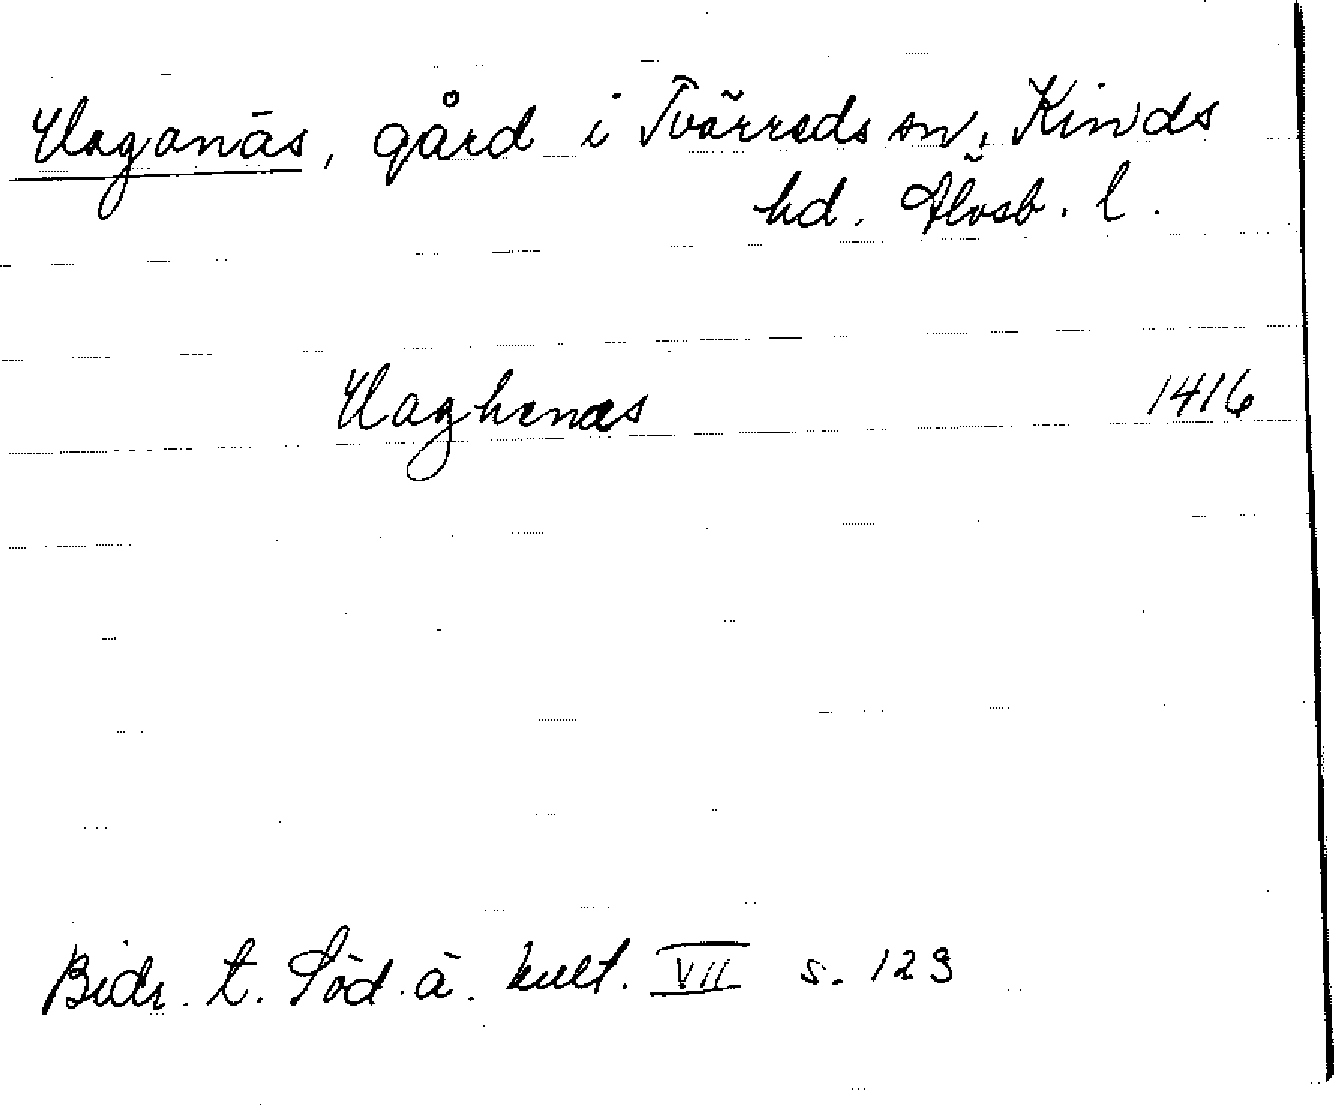 Vaganäs, gård i Tvärreds sn, Kinds
hd. Älvsb. l.
Vaghenæs 1416
Bidr. t. Söd. ä. kult. VII s. 123